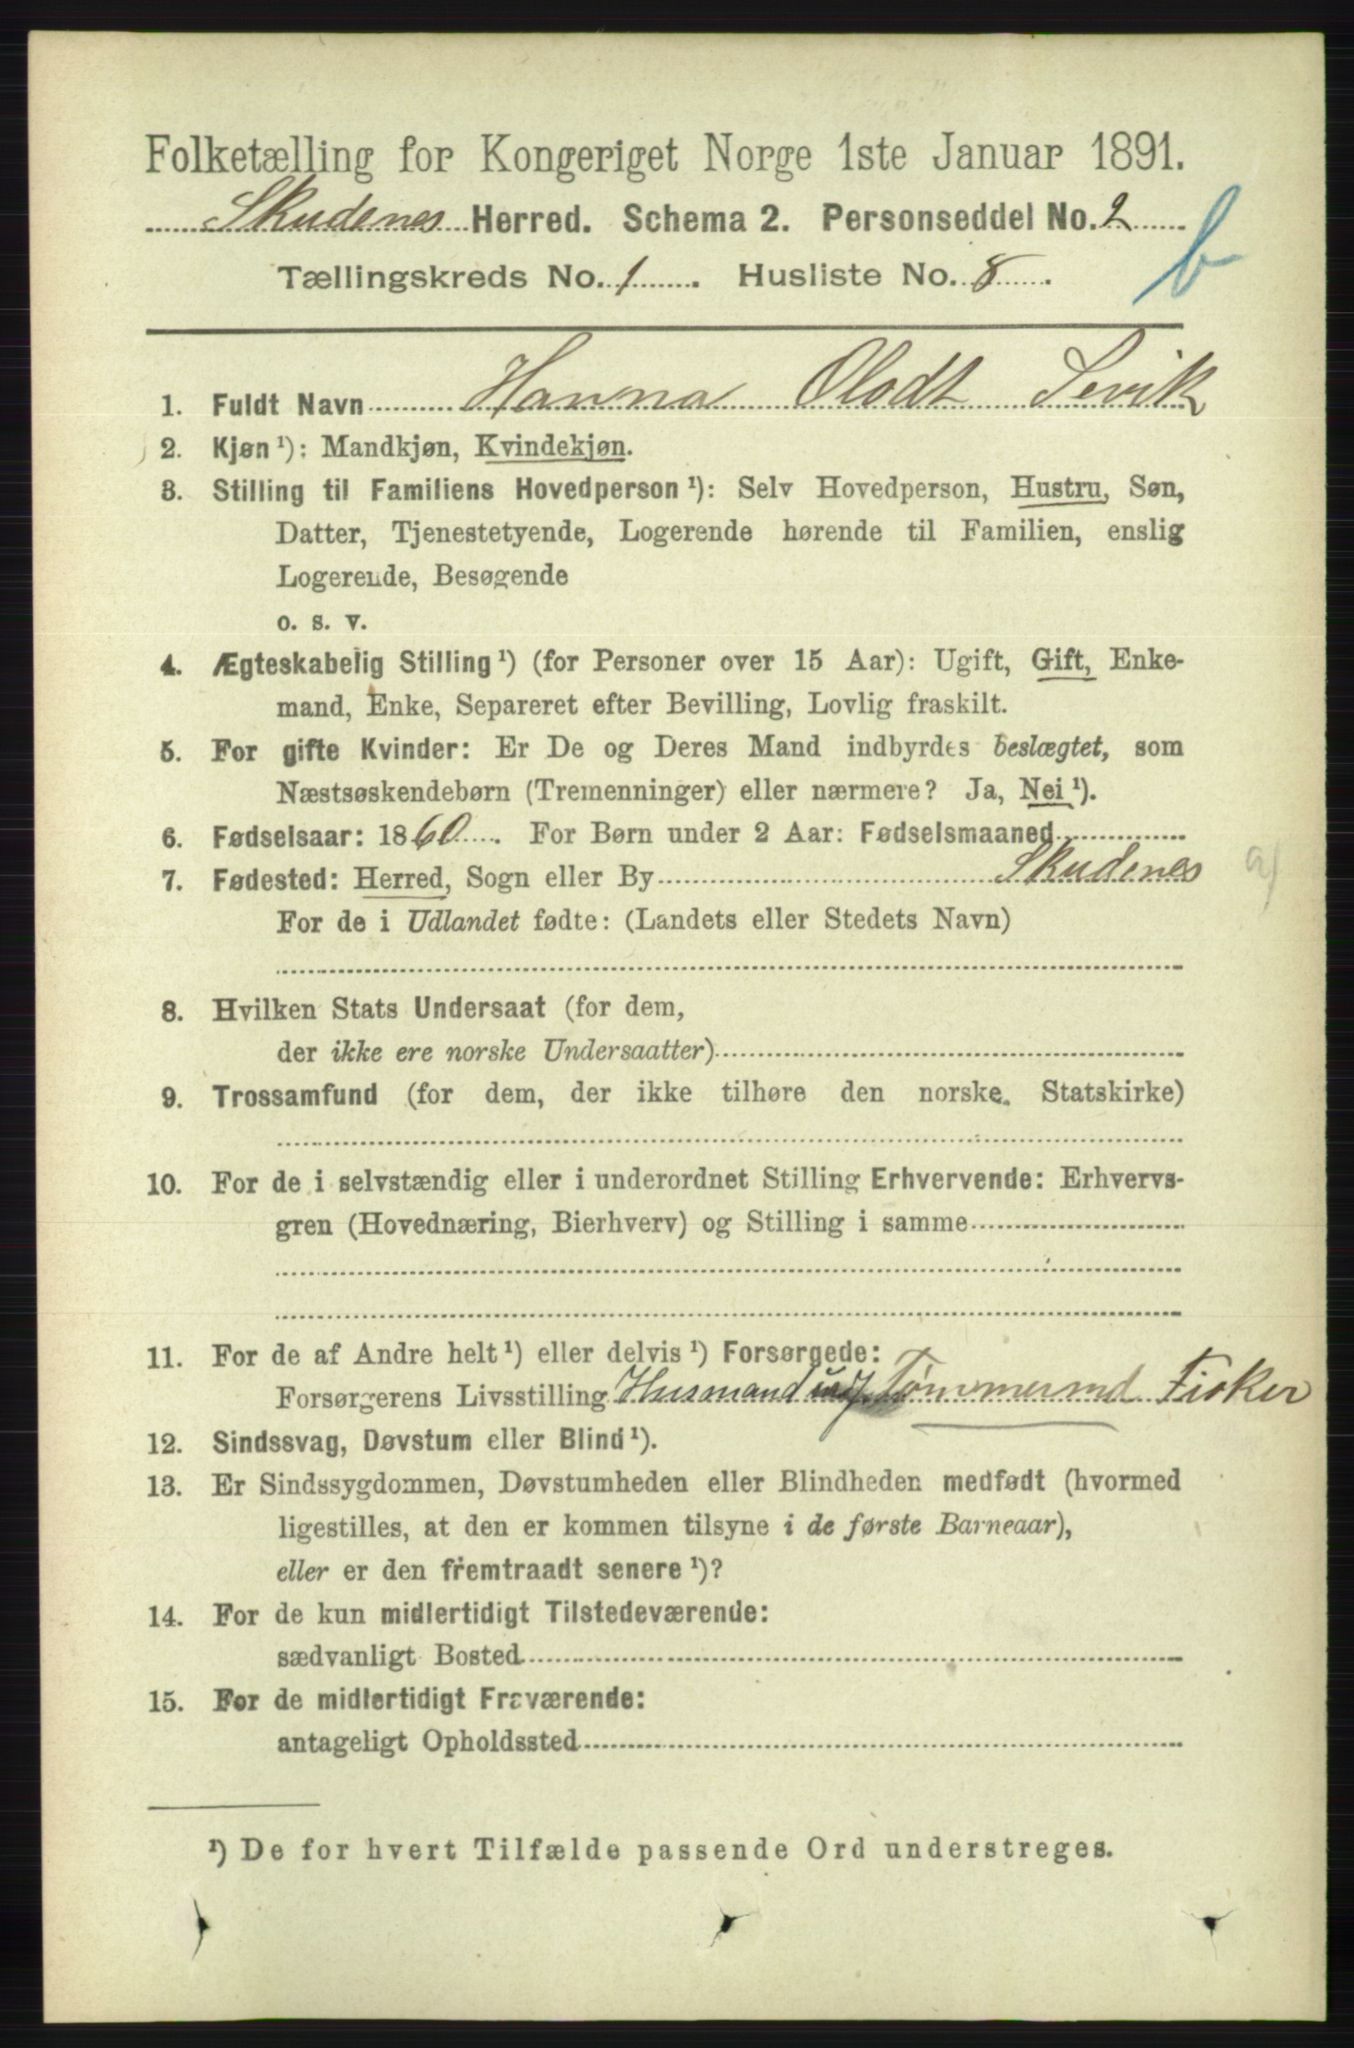 Folketælling for Kongeriget Norge 1ste Januar 1891.
Skudenes Herred. Schema 2. Personseddel No. 2
Tællingskreds No. 1. Husliste No. 8.
b
1. Fuldt Navn Hanna Olsdt Sevik
2. Kjøn ¹): Mandkjøn, Kvindekjøn.
3. Stilling til Familiens Hovedperson ¹): Selv Hovedperson, Hustru, Søn,
Datter, Tjenestetyende, Logerende hørende til Familien, enslig
Logerende, Besøgende
o. s. v.
4. Ægteskabelig Stilling ¹) (for Personer over 15 Aar): Ugift, Gift, Enke-
mand, Enke, Separeret efter Bevilling, Lovlig fraskilt.
5. For gifte Kvinder: Er De og Deres Mand indbyrdes beslægtet, som
Næstsøskendebørn (Tremenninger) eller nærmere? Ja, Nei ¹).
6. Fødselsaar: 1860. For Børn under 2 Aar: Fødselsmaaned
7. Fødested: Herred, Sogn eller By Skudenes
For de i Udlandet fødte: (Landets eller Stedets Navn)
8. Hvilken Stats Undersaat (for dem,
der ikke ere norske Undersaatter)
9. Trossamfund (for dem, der ikke tilhøre den norske Statskirke)
10. For de i selvstændig eller i underordnet Stilling Erhvervende: Erhvervs-
gren (Hovednæring, Bierhverv) og Stilling i samme
11. For de af Andre helt ¹) eller delvis ¹) Forsørgede:
Forsørgerens Livsstilling Husmand Tømmermd Fisker
12. Sindssvag, Døvstum eller Blind ¹).
13. Er Sindssygdommen, Døvstumheden eller Blindheden medfødt (hvormed
ligestilles, at den er kommen tilsyne i de første Barneaar),
eller er den fremtraadt senere ¹)?
14. For de kun midlertidigt Tilstedeværende:
sædvanligt Bosted
15. For de midlertidigt Fraværende:
antageligt Opholdssted
¹) De for hvert Tilfælde passende Ord understreges.